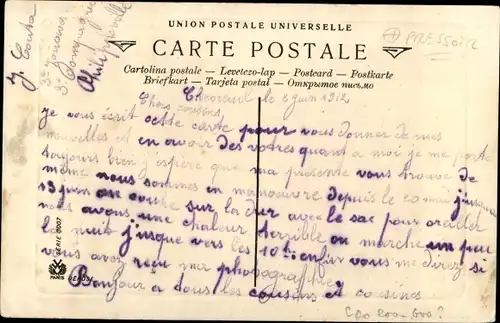 UNION POSTALE UNIVERSELLE
CARTE POSTALE
Cartolina postale — Levelezo-lap — Postcard — Postkarte
Briefkart — Tarjeta postal — Открытое письмо
PRESSOIR
J. Couta
3e Zouaves
3e Compagnie
Philippeville
le 8 juin 1912
Chers cousins
Je vous écrit cette carte pour vous donner de mes
nouvelles et en avoir des votres quant a moi je me porte
toujours bien j'espère que ma présente vous trouve de
même nous sommes en manoeuvre depuis le 20 mai jusqu'au
13 juin on couche sur la dur avec le sac pour oreiller
nous avons une chaleur terrible on marche un peu
la nuit jusque vers les 10 h enfin vous me direz si
vous avez reçu ma photographie
Bonjour a tous les cousins et cousines
SERIE
PARIS